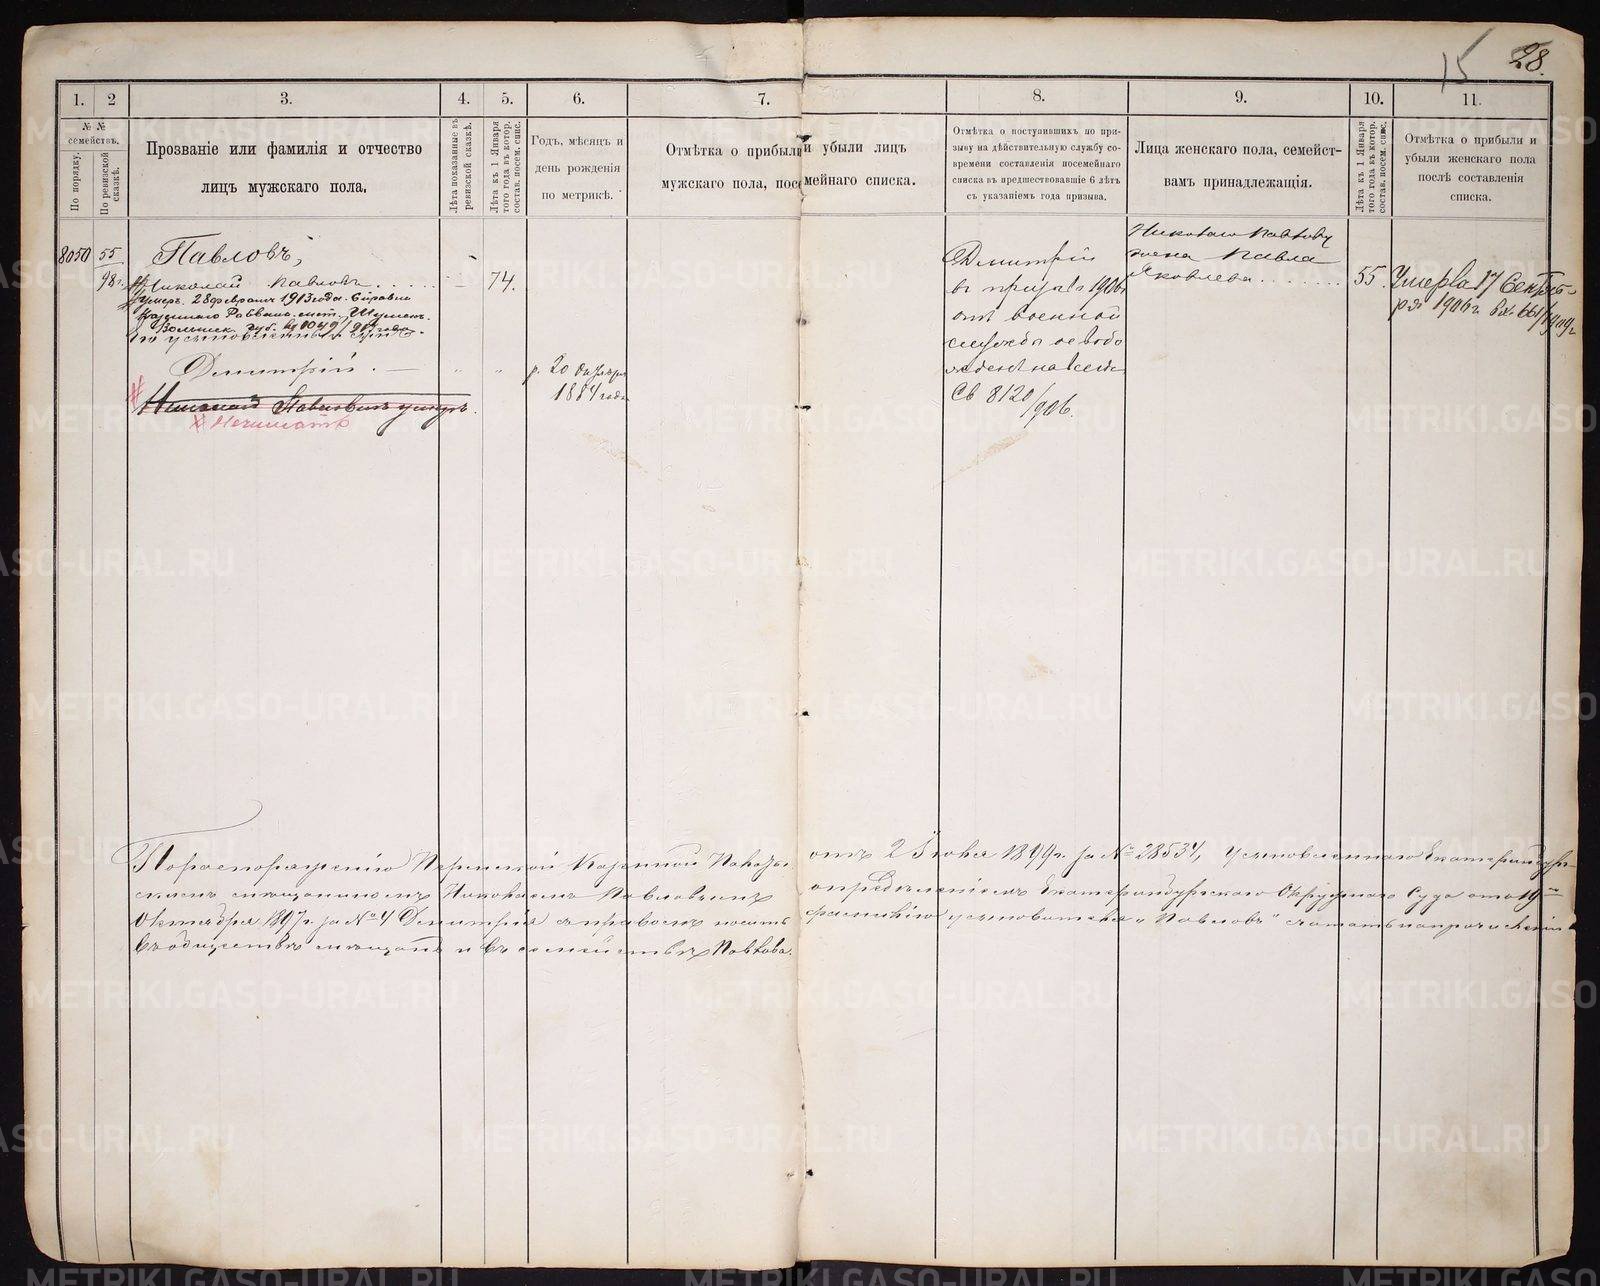 15 28.
1. 2 3. 4. 5. 6. 7. 8. 9. 10. 11.
№ № семействъ.
По порядку.
По ревизской сказкѣ.
Прозваніе или фамилія и отчество
лицъ мужскаго пола.
Лѣта показанные въ ревизской сказкѣ.
Лѣта къ 1 Января того года въ котор. состав. посем. спис.
Годъ, мѣсяцъ и
день рожденія
по метрикѣ.
Отмѣтка о прибыли и убыли лицъ
мужскаго пола, посемейнаго списка.
Отмѣтка о поступившихъ по при-
зыву на дѣйствительную службу со-
времени составленія посемейнаго
списка въ предшествовавшіе 6 лѣтъ
съ указаніемъ года призыва.
Лица женскаго пола, семейст-
вамъ принадлежащія.
Лѣта къ 1 Января того года въ котор. состав. посем. спис.
Отмѣтка о прибыли и
убыли женскаго пола
послѣ составленія
списка.
8050 55
98.
Павловъ,
Николай Павловъ 74.
Умеръ 28 февраля 1913 года. Справка
Казеннаго Раввина мѣст. Шумск.
Волынск. губ.
усыновленный
Дмитрій. р. 20 Октября
1884 года
Николай Павловичъ умеръ.
Дмитрій
въ призывъ 1906
отъ военной
службы освобо
Св 8120/906.
Николая Павлова
жена Павла
Яковлева 55.
Умерла 17 Сентяб-
ря 1906 г. вх. 661/1909 г.
По распоряженію Пермской Казенной Палаты отъ 2 Іюня 1899 г. за № 28534, усыновленнаго Екатеринбург-
скимъ мѣщаниномъ Николаемъ Павловымъ опредѣленіемъ Екатеринбургскаго Окружнаго Суда отъ 19
Октября 1897 г. за № 4 Дмитрія съ правомъ носить фамилію усыновителя „Павловъ" считать по причисленіи
въ общество мѣщанъ и въ семействѣ Павлова.
METRIKI.GASO-URAL.RU